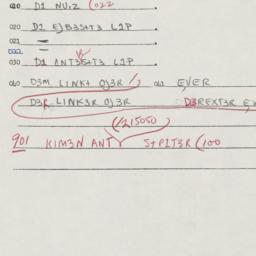 010 D1 NUiZ (022
020 D1 EJB3S+T3 L1P
021 —
022 —
030 D1 ANT3S+T3 L1P
040 D3M LINK+ OJ3R 041 E,VER
D3R LINK3R OJ3R D3REXT3R
(/215050)
901 KIM3N ANT S+PIT3R (100